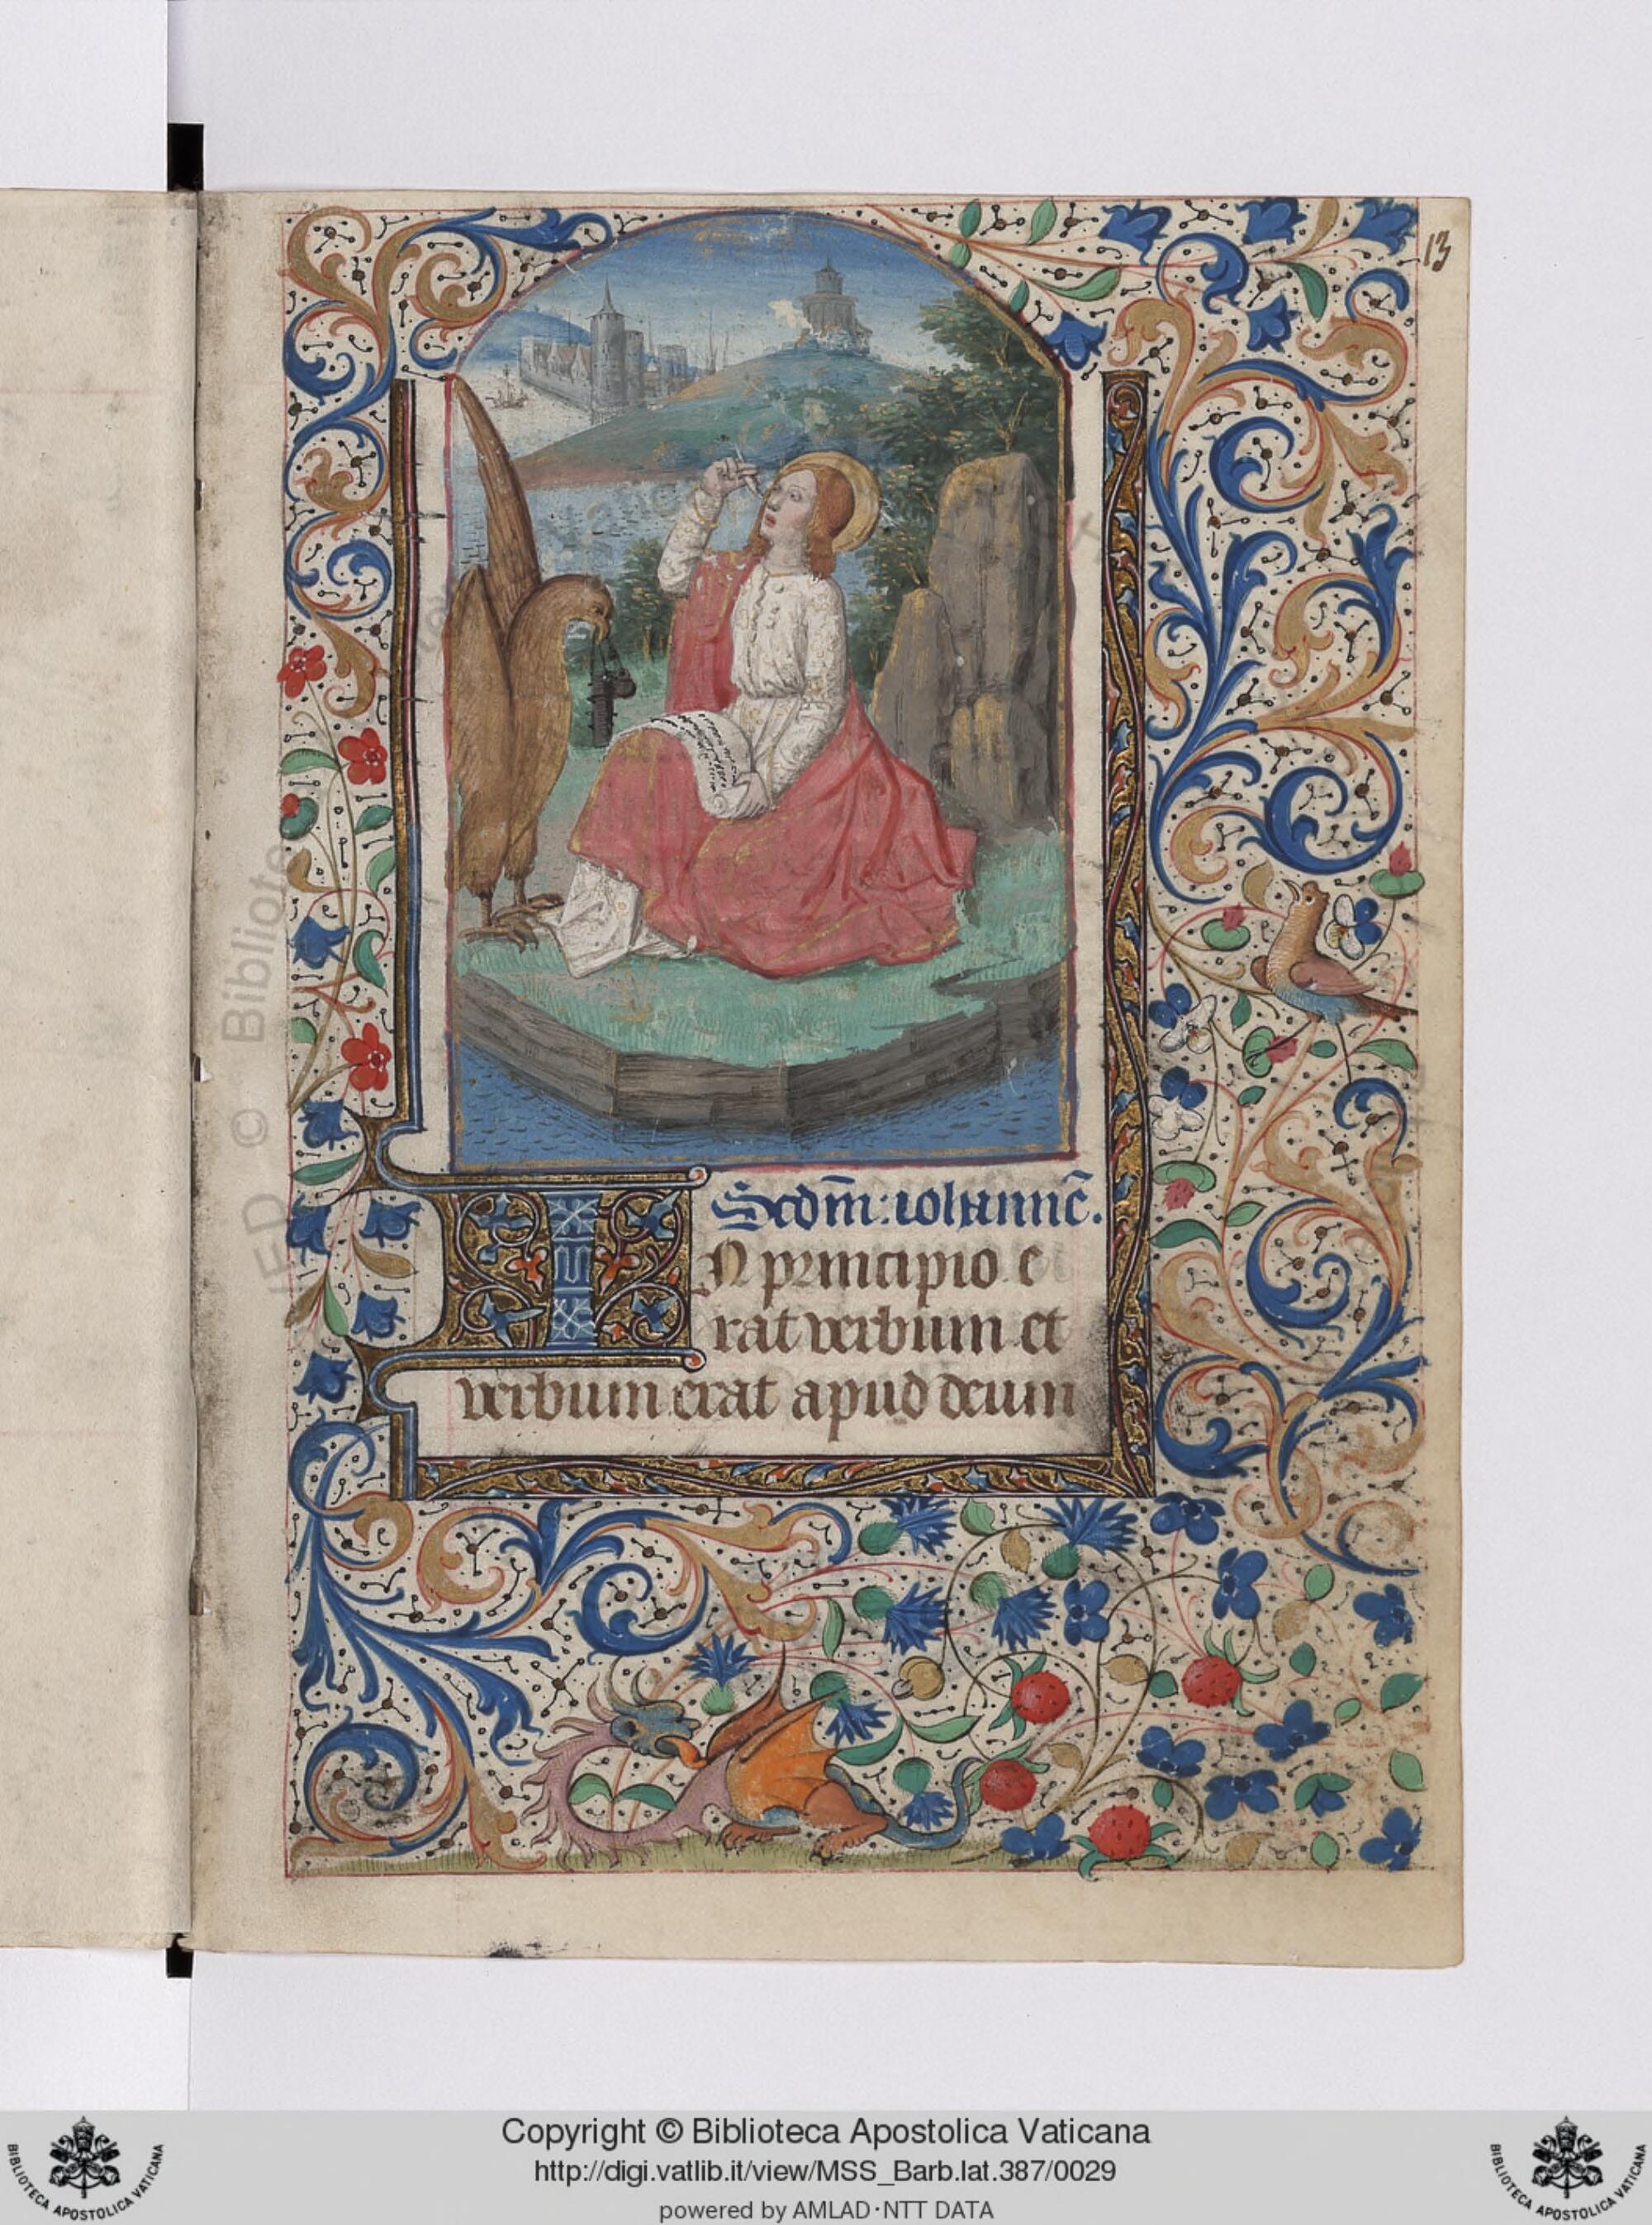 13
Scdm̄: iohannē.
IN principio e
rat verbum et
verbum erat apud deum
Copyright © Biblioteca Apostolica Vaticana
http://digi.vatlib.it/view/MSS_Barb.lat.387/0029
powered by AMLAD·NTT DATA
BIBLIOTECA APOSTOLICA VATICANA
BIBLIOTECA APOSTOLICA VATICANA